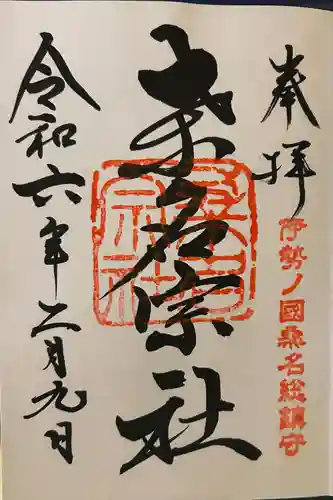 奉拝
伊勢ノ國桑名総鎮守
桒名宗社
桑名宗社
令和六年二月九日